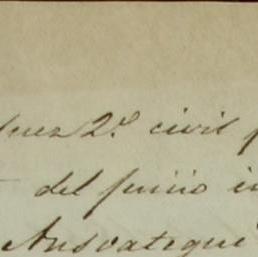 Juez 2.º civil
del juicio
Ansoategui